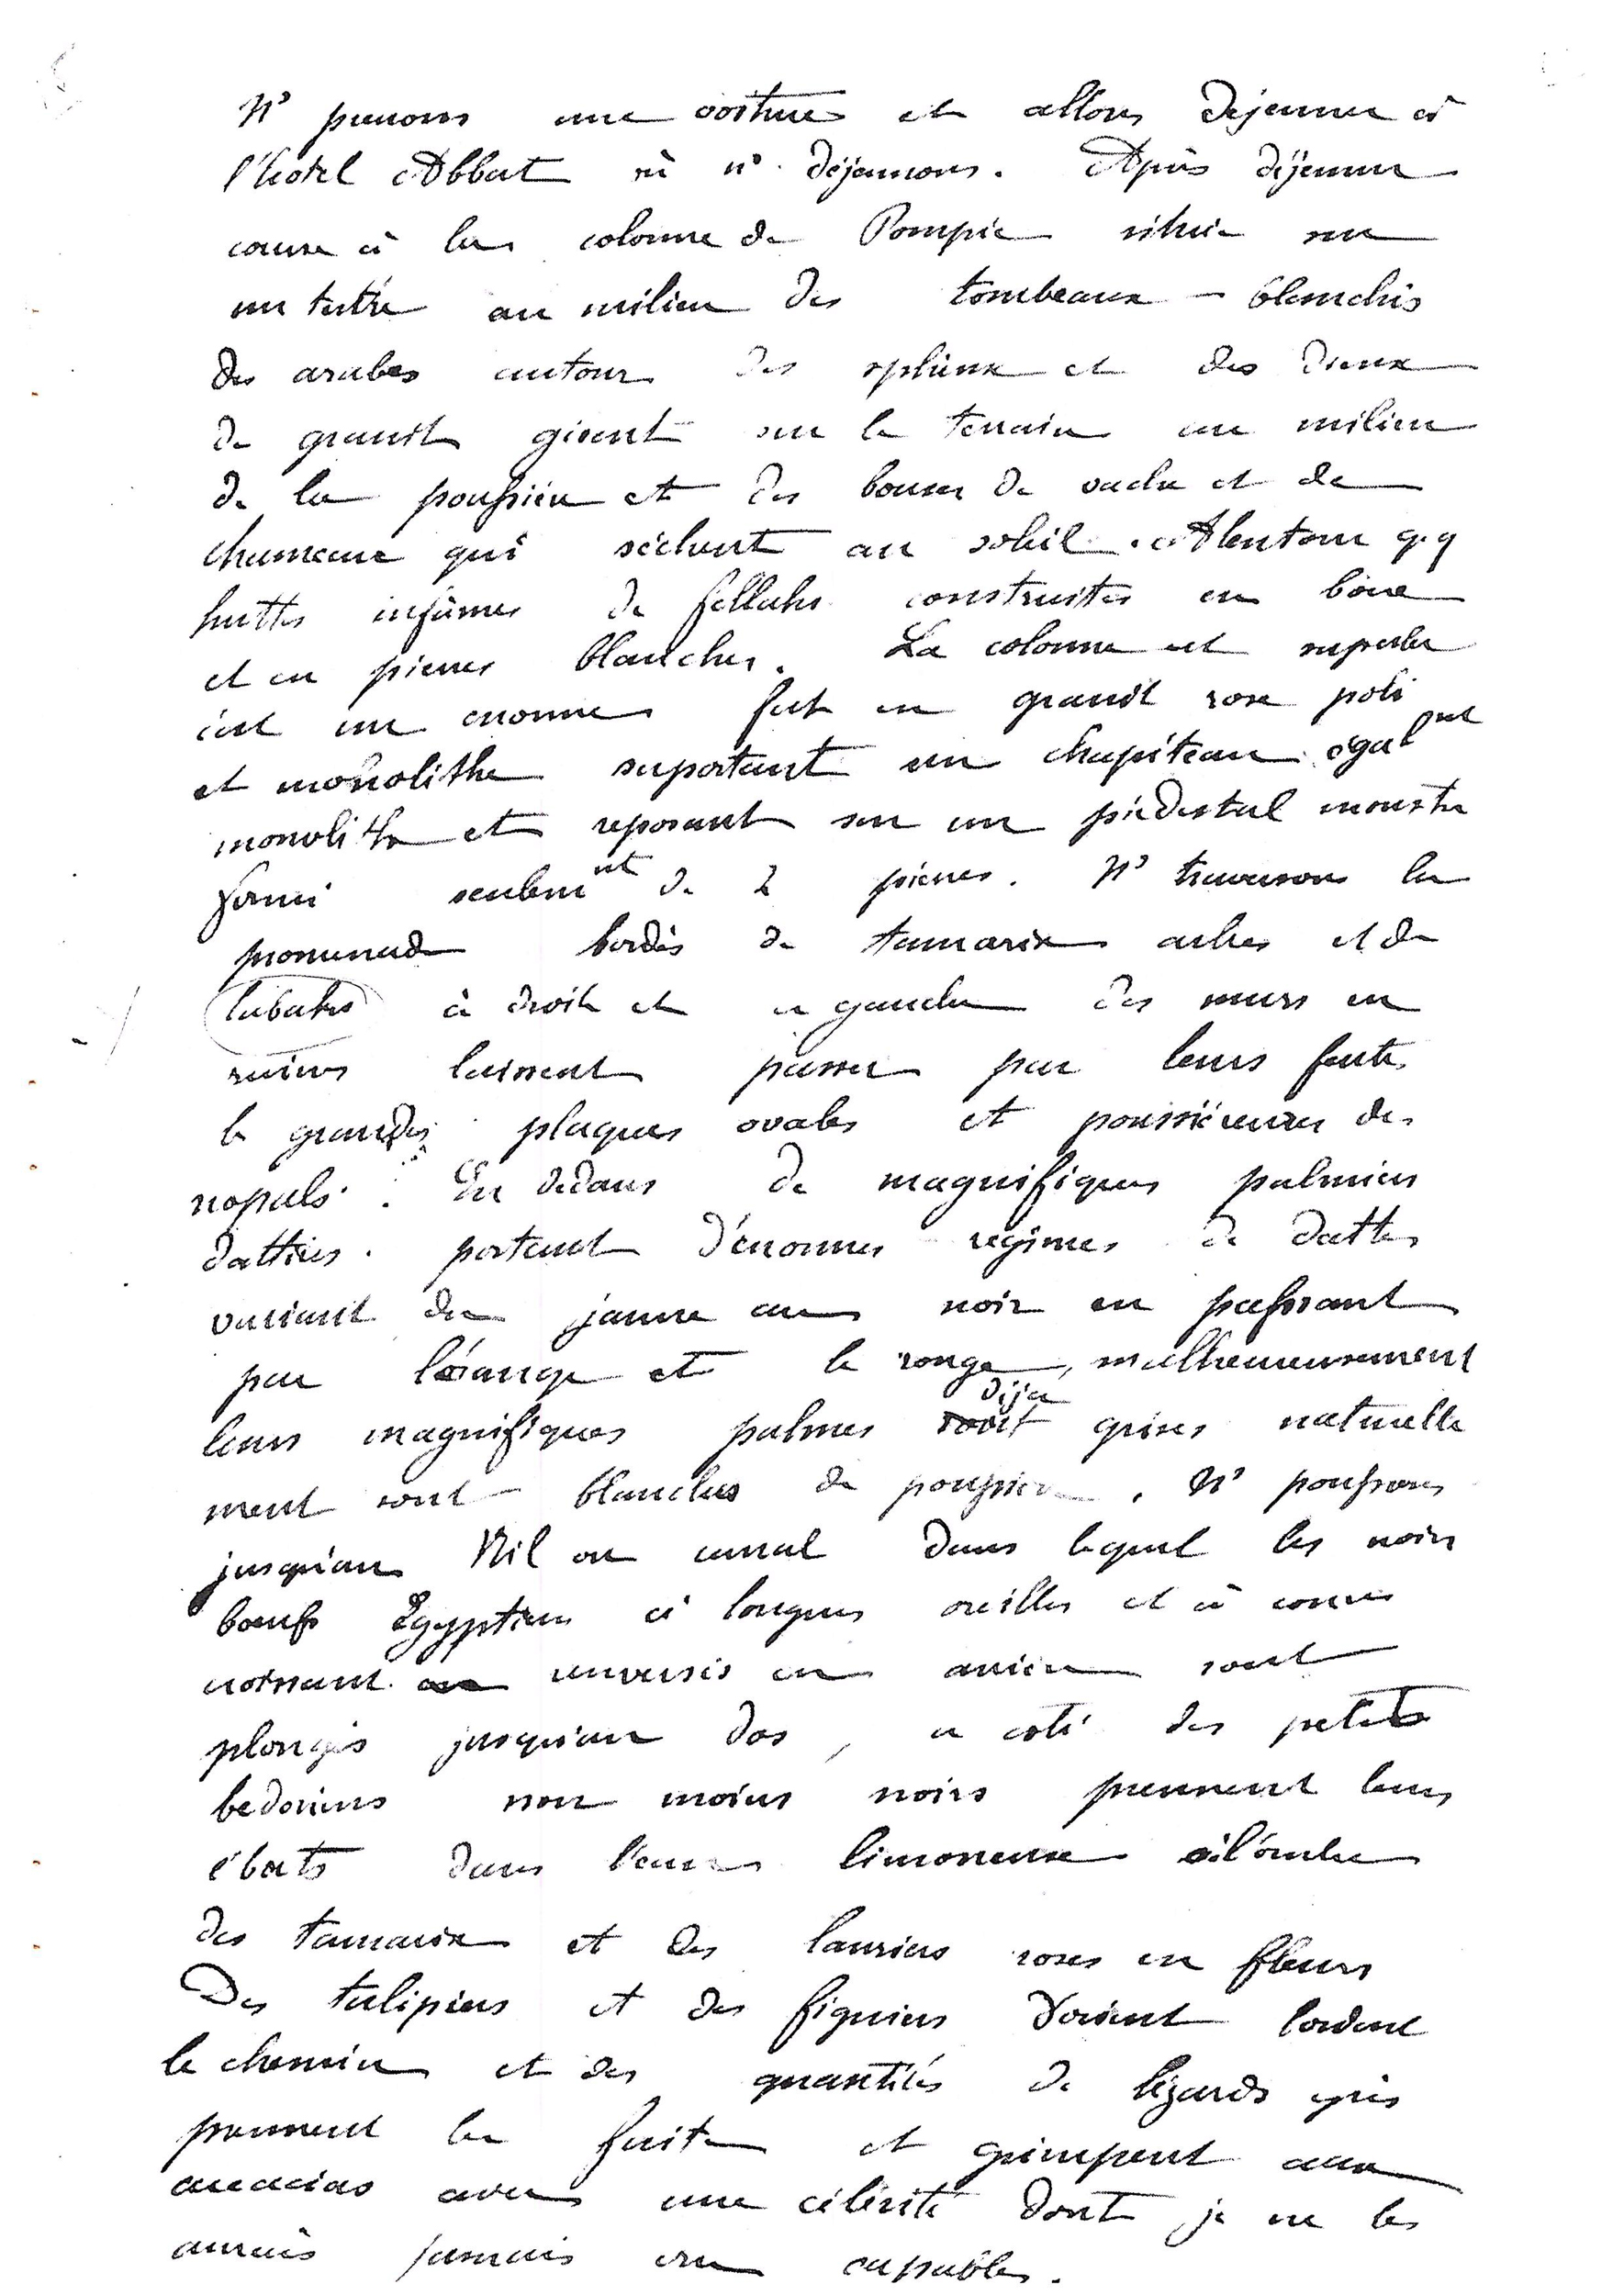 Ns prenons une voiture et allons dejeuner à
l'hotel Abbat où ns déjeunons. Après déjeuner
course à la colonne de Pompée située sur
un tertre au milieu des tombeaux blanchis
des arabes autour des sphinx et des dieux
de granit gisent sur le terrain au milieu
de la poussière et des bouses de vache et de
chameau qui sèchent au soleil. Alentour q.q
huttes infâmes de fellahs construites en boue
et en pierres blanches. La colonne est superbe
c'est un enorme fut en granit rose poli
et monolithe suportant un chapiteau égalmt
monolithe et reposant sur un piédestal monstre
formé seulemnt de 2 pierres. Ns traversons la
promenade bordés de tamarix arbres et de
à droite et a gauche des murs en
ruines laissent passer par leurs fentes
le grandes plaques ovales et poussiéreuses des
nopals. En dedans de magnifiques palmiers
dattiers. portent d'énormes régimes de dattes
variant du jaune au noir en passant
par l'orange et le rouge, malheureusement
leurs magnifiques palmes déja grises naturelle
ment sont blanches de poussière. Ns poussons
jusqu'au Nil ou canal dans lequel les noirs
bœufs Egyptiens à longues oreilles et à cornes
croissant renversés en arrière sont
plongés jusqu'au dos, a coté des petits
bedouins non moins noirs prennent leurs
ébats dans l'eau limoneuse à l'ombre
des tamarix et des lauriers roses en fleurs
Des tulipiers et des figuiers bordent
le chemin et des quantités de lézards gris
prennent la fuite et grimpent aux
acacias avec une célérité dont je ne les
aurais jamais cru capables.